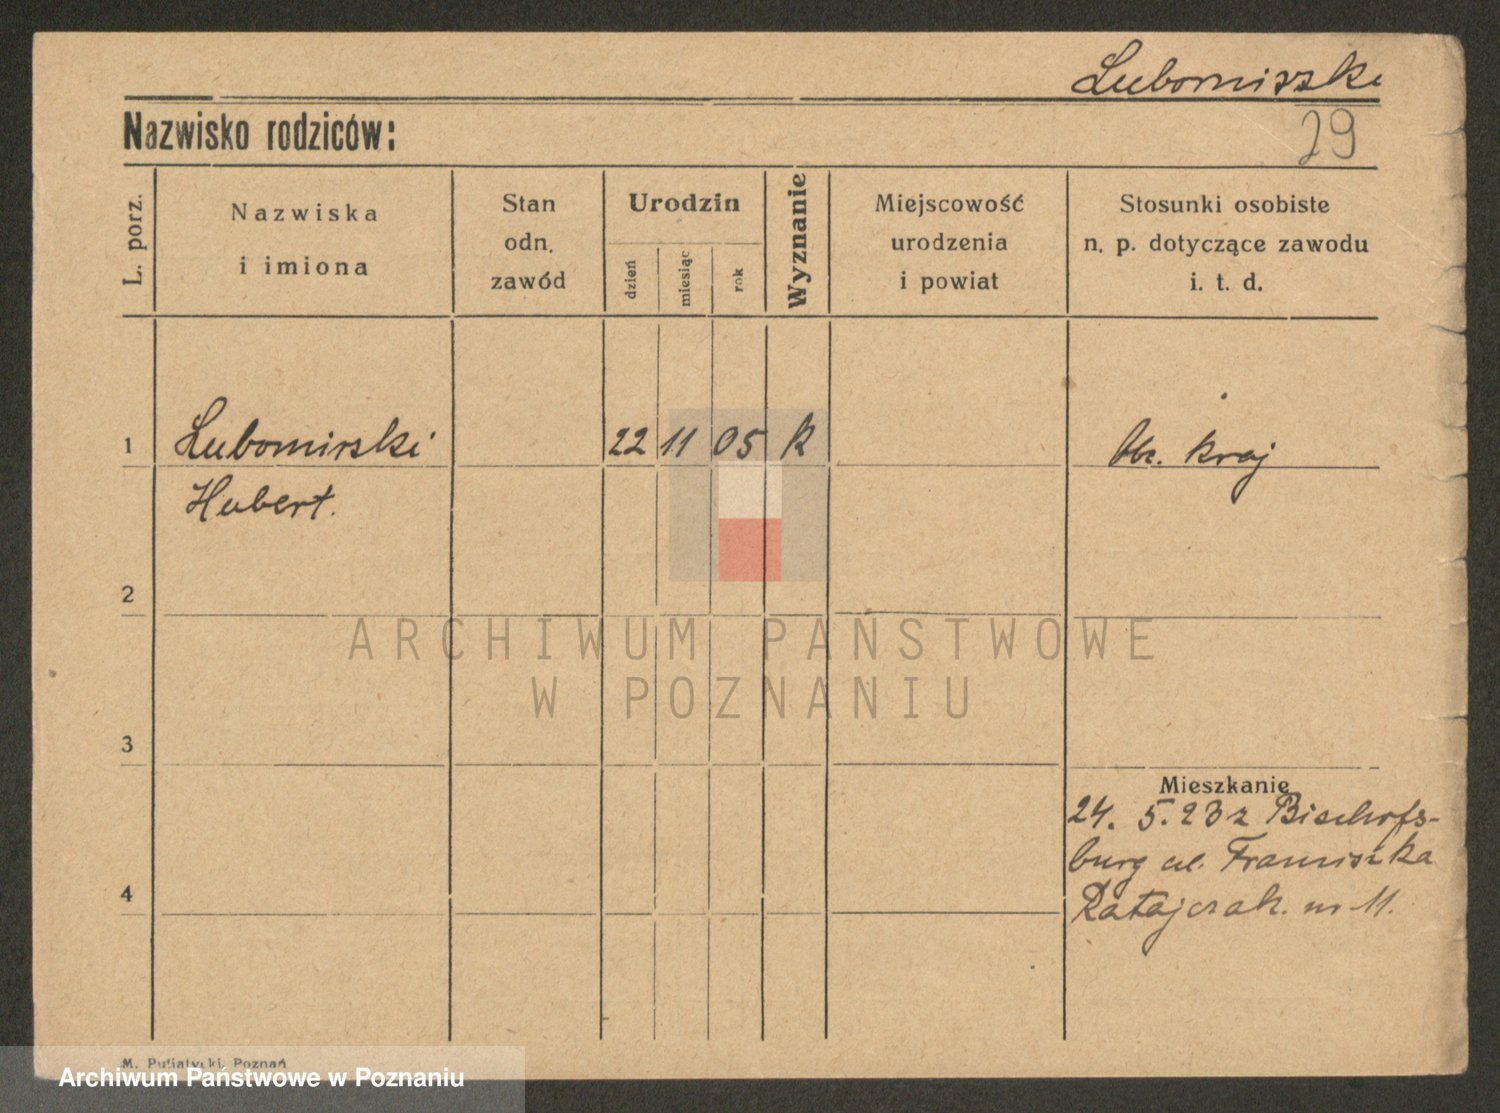 Lubomirski
29
Nazwisko rodziców:
L. porz.
Nazwiska
i imiona
Stan
odn.
zawód
Urodzin
dzień
miesiąc
rok
Wyznanie
Miejscowość
urodzenia
i powiat
Stosunki osobiste
n. p. dotyczące zawodu
i. t. d.
1
Lubomirski
22 11 05 k
kraj
Hubert.
2
ARCHIWUM PAŃSTWOWE
W POZNANIU
3
Mieszkanie
24. 5. 23 z Bischofs-
burg ul. Franciszka
4
Ratajczak. nr 11.
M. Putiatycki, Poznań
Archiwum Państwowe w Poznaniu